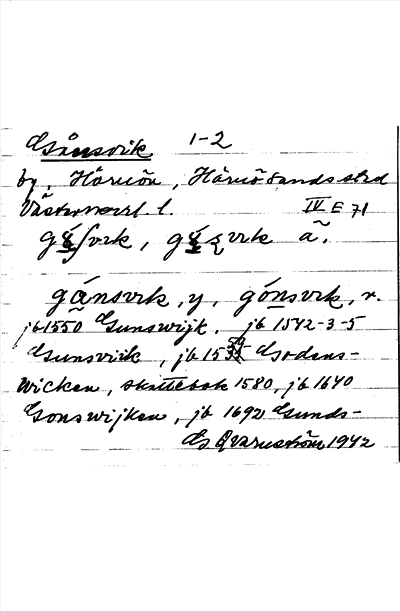 Gånsvik 1-2
by, Härnön, Härnösands strd
Västernorrl. l. IV E 71
gånsvik, y, gónsvik, r.
jb 1550 Gunswijk, jb 1542-3-5
Gunsviik, jb 15 Godens-
wicken, skattebok 1580, jb 1640
Gonswijken, jb 1692 Gunds-
G Qvarnström 1942